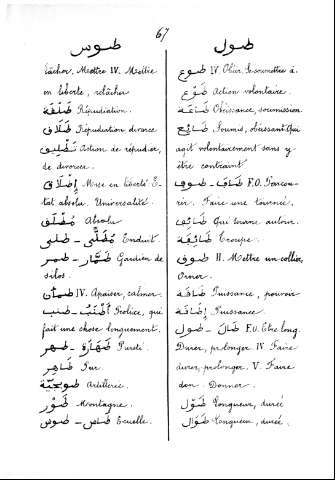 67
طوس
lâcher, Mettre IV. Mettre
en liberté, relâcher
طلقة Répudiation.
طلاق Répudiation divorce
تطليق Action de répudier,
de divorcer.
إطلاق Mise en liberté E-
tat absolu. Universalité.
مطلق Absolu
مطلي - طلي Enduit.
طمار - طمر Gardien de
silos.
طمان IV. Apaiser, calmer.
أطنب - طنب Prolixe, qui
fait une chose longuement.
طهارة - طهر Pureté.
طاهر Pur.
طوبجية Artillerie.
طور Montagne.
طاس - طوس Ecuelle.
طول
طوع IV. Obéir. Se soumettre à.
طوع Action volontaire.
طاعة Obéissance, soumission
طايع Soumis, obéissant. Qui
agit volontairement sans y
être contraint
طاف - طوف F.O. Parcou-
rir. Faire une tournée.
طايف Qui tourne autour.
طايفة Troupe.
طوف II. Mettre un collier,
Orner.
طاقة Puissance, pouvoir
إطاقة Puissance.
طال - طول F.O. Etre long.
Durer, prolonger IV. Faire
durer, prolonger. V. Faire
don. Donner.
طول Longueur, durée
طوال Longueur, durée.